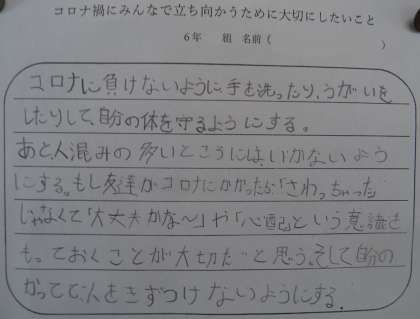 コロナ禍にみんなで立ち向かうために大切にしたいこと
6年 組 名前( )
コロナに負けないように、手を洗ったり、うがいを
したりして、自分の体を守るようにする。
あと、人混みの多いところには、いかないよう
にする。もし友達がコロナにかかったら「さわっちゃった
じゃなくて「大丈夫かな〜」や「心配」という意識を
もっておくことが大切だと思う。そして自分の
かってで、人をきずつけないようにする。